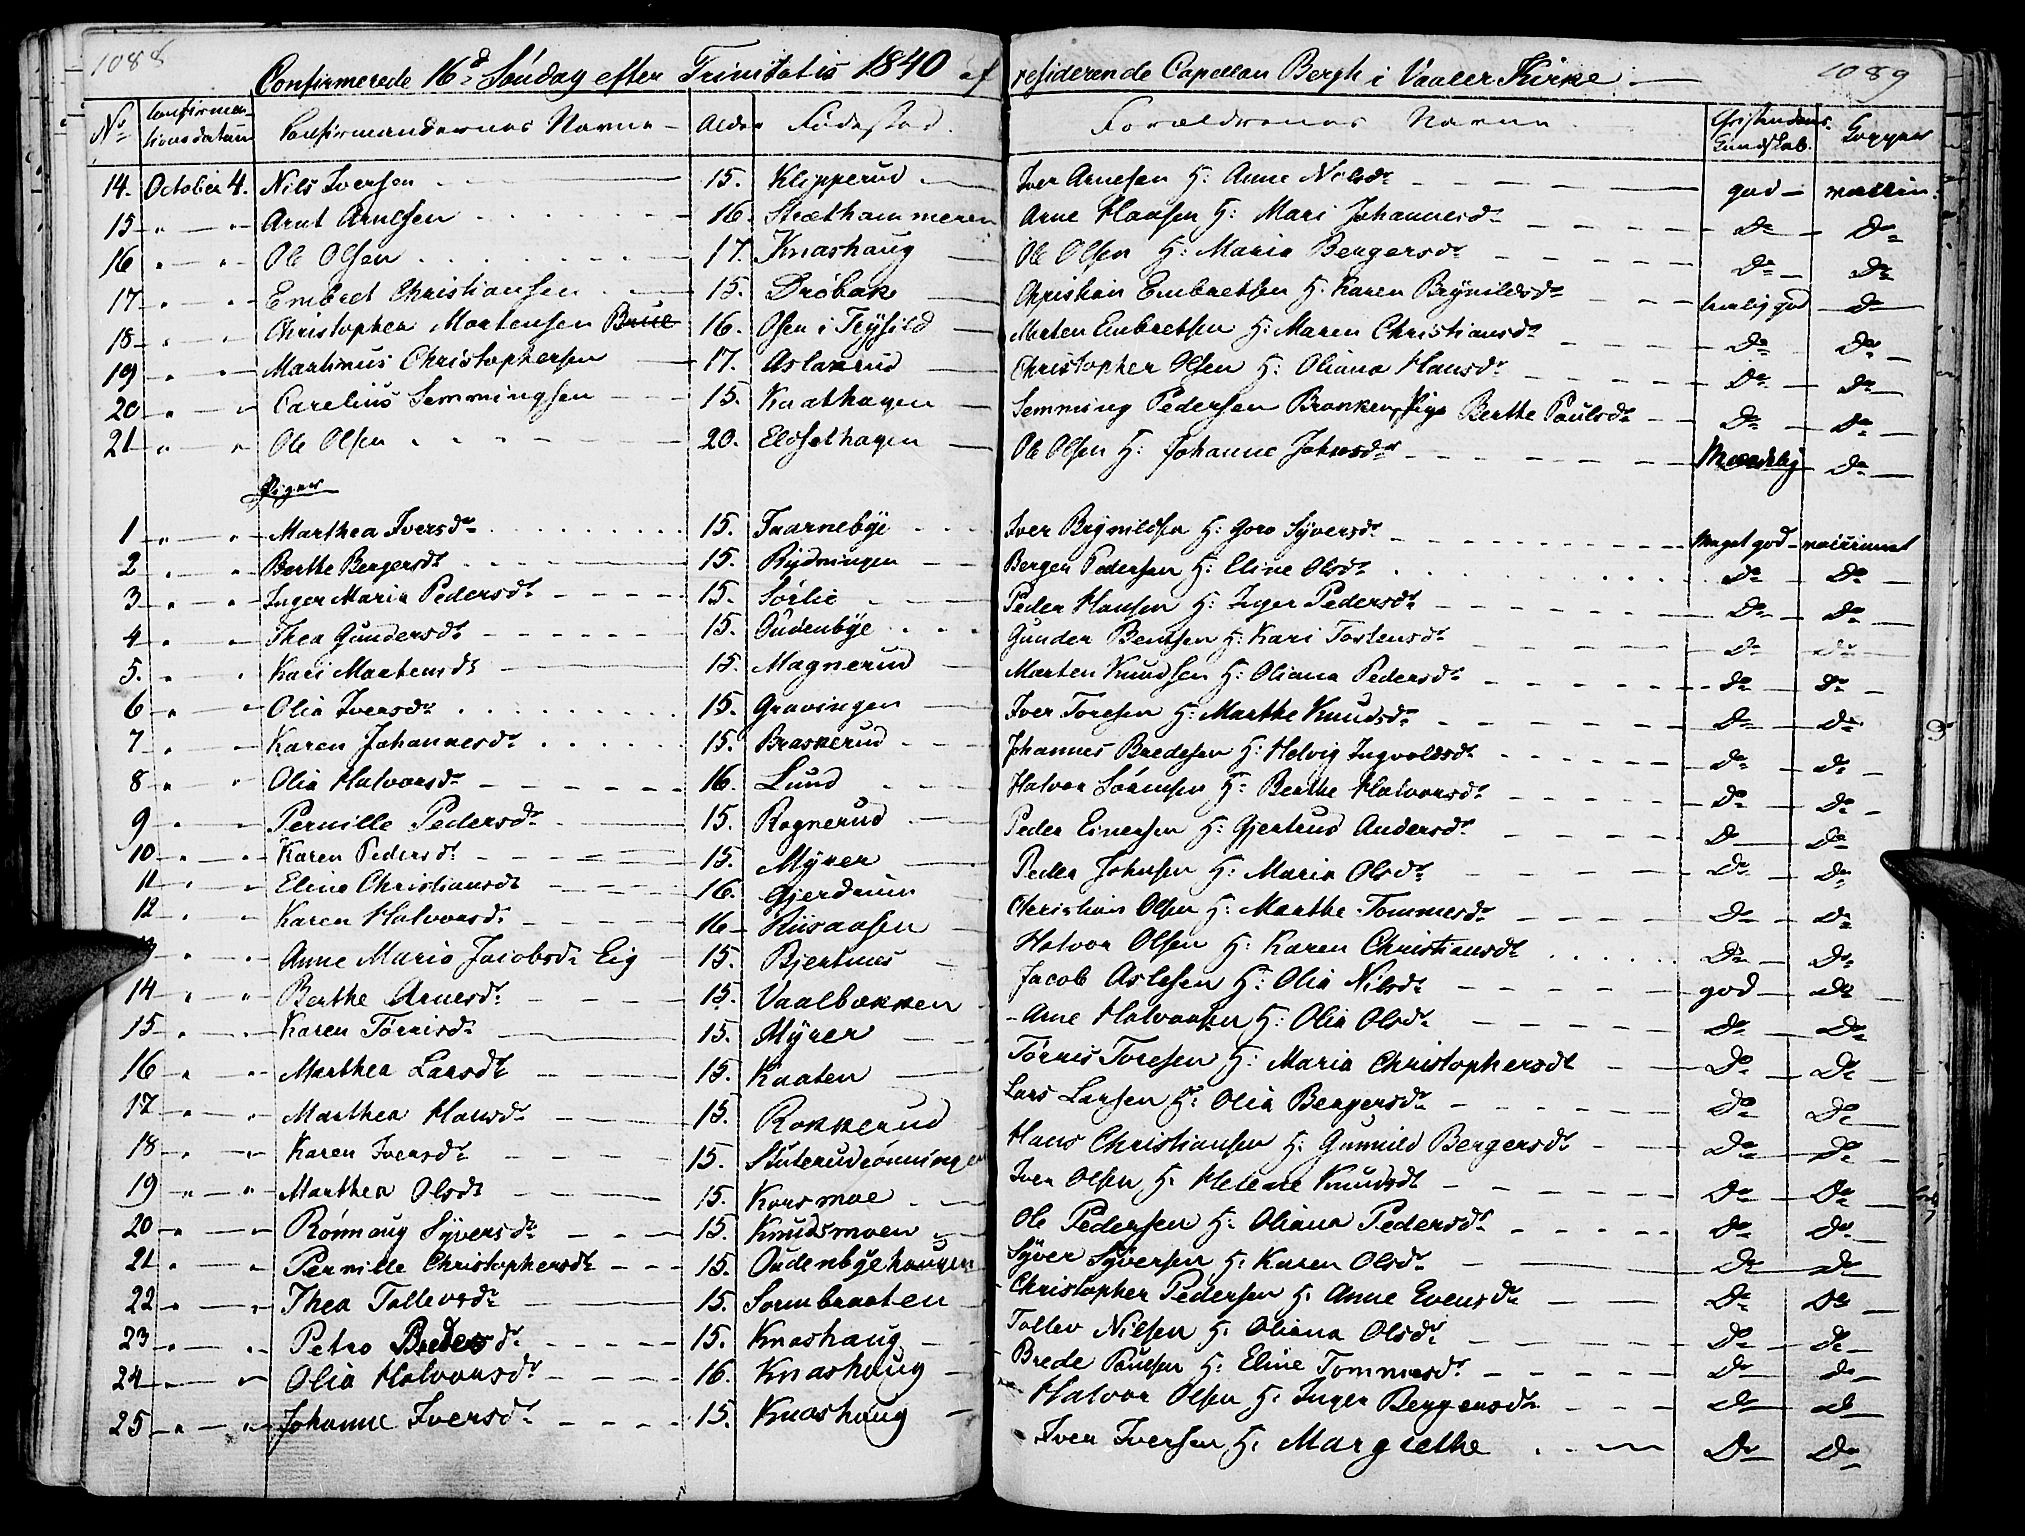 1088 1089
Confirmerede 16d. Søndag efter Trinitatis 1840 af residerende Capellan Bergh i Vaaler Kirke
No Confirmationsdatum Confirmandernes Navne Alder Fødested Forældrenes Navne Christendoms Kundskab. Kopper
14. October 4. Nils Iversen 15. Klipperud Iver Arnesen H: Anne Nilsdr god
15 " " Arnt Arnesen 16. Stræthammeren Arne Hansen H: Mari Johannesdr Do Do
16 " " Ole Olsen 17. Knashaug Ole Olsen H: Maria Bergersdr Do Do
17 " " Embret Christiansen 15. Drøbak Christian Embretsen H. Karen Brynildsdr god Do
18 " " Christopher Mortensen 16. Osen i Trysild Morten Embretsen H: Maren Christiansdr Do Do
19 " " Martinus Christophersen 17. Aslakrud Christopher Olsen H: Oliana Hansdr Do Do
20 " " Carelius Semmingsen 15. Knathagen Semming Pedersen Pige Berthe Paulsdr Do Do
21 " " Ole Olsen 20. Elosethagen Ole Olsen H: Johanne Johnsdr Maadelig Do
Piger
1 " " Marthea Iversdr 15. Taarnebye Iver Brynildsen H: Goro Syversdr Meget god vaccineret
2 " " Berthe Bergersdr 15. Rydningen Berger Pedersen H: Eline Olsdr Do Do
3 " " Inger Maria Pedersdr 15. Sørlie Peder Hansen H: Inger Pedersdr Do Do
4 " " Thea Gundersdr 15. Oudenbye Gunder Bentsen H: Kari Tostensdr Do Do
5. " " Kari Mortensdr 15. Magnerud Morten Knudsen H: Oliana Pedersdr Do Do
6 " " Olia Iversdr 15. Gravingen Iver Toresen H: Marthe Knudsdr Do Do
7 " " Karen Johannesdr 15. Braskerud Johannes Bredesen H: Helvig Ingvoldsdr Do Do
8 " " Olia Halvorsdr 16. Lund Halvor Sørensen H: Berthe Halvorsdr Do Do
9 " " Pernille Pedersdr 15. Rognerud Peder Einersen H: Gjertrud Andersdr Do Do
10 " " Karen Pedersdr 15. Myrer Peder Johnsen H: Maria Olsdr Do Do
11 " " Eline Christiansdr 16. Gjerdrum Christian Olsen H: Marthe Tommesdr Do Do
12 " " Karen Halvorsdr 16 Riisaasen Halvor Olsen H: Karen Christiansdr Do Do
" " Anne Maria Jacobsdr Eig 15. Bjertnes Jacob Aslesen H: Olia Nilsdr god Do
14 " " Berthe Arnesdr 15. Vaalbækken Arne Halvorsen H: Olia Olsdr Do Do
15 " " Karen Tørrisdr 15. Myrer Tørris Toresen H: Maria Christophersdr Do Do
16 " " Marthea Larsdr 15. Kaaten Lars Larsen H: Olia Bergersdr Do Do
17 " " Marthea Hansdr 15. Rokkerud Hans Christiansen H. Gunnild Bergersdr Do Do
18 " " Karen Iversdr 15. Iver Olsen H. Helene Knudsdr Do Do
19 " " Marthea Olsdr 15. Korsmoe Ole Pedersen H: Oliana Pedersdr Do Do
20 " " Rønnaug Syversdr 15. Knudsmoen Syver Syversen H: Karen Olsdr Do Do
21 " " Pernille Christophersdr 15. Oudenbyehaugen Christopher Pedersen H. Anne Evensdr Do Do
22 " " Thea Tollevsdr 15. Sormbraaten Tollev Nilsen H. Oliana Olsdr Do Do
23 " " Petro Bredesdr 15. Knashaug Brede Paulsen H: Eline Tommesdr Do Do
24 " " Olia Halvorsdr 16. Knashaug Halvor Olsen H: Inger Bergersdr Do Do
25 " " Johanne Iversdr 15. Knashaug Iver Iversen H. Margrethe Do Do